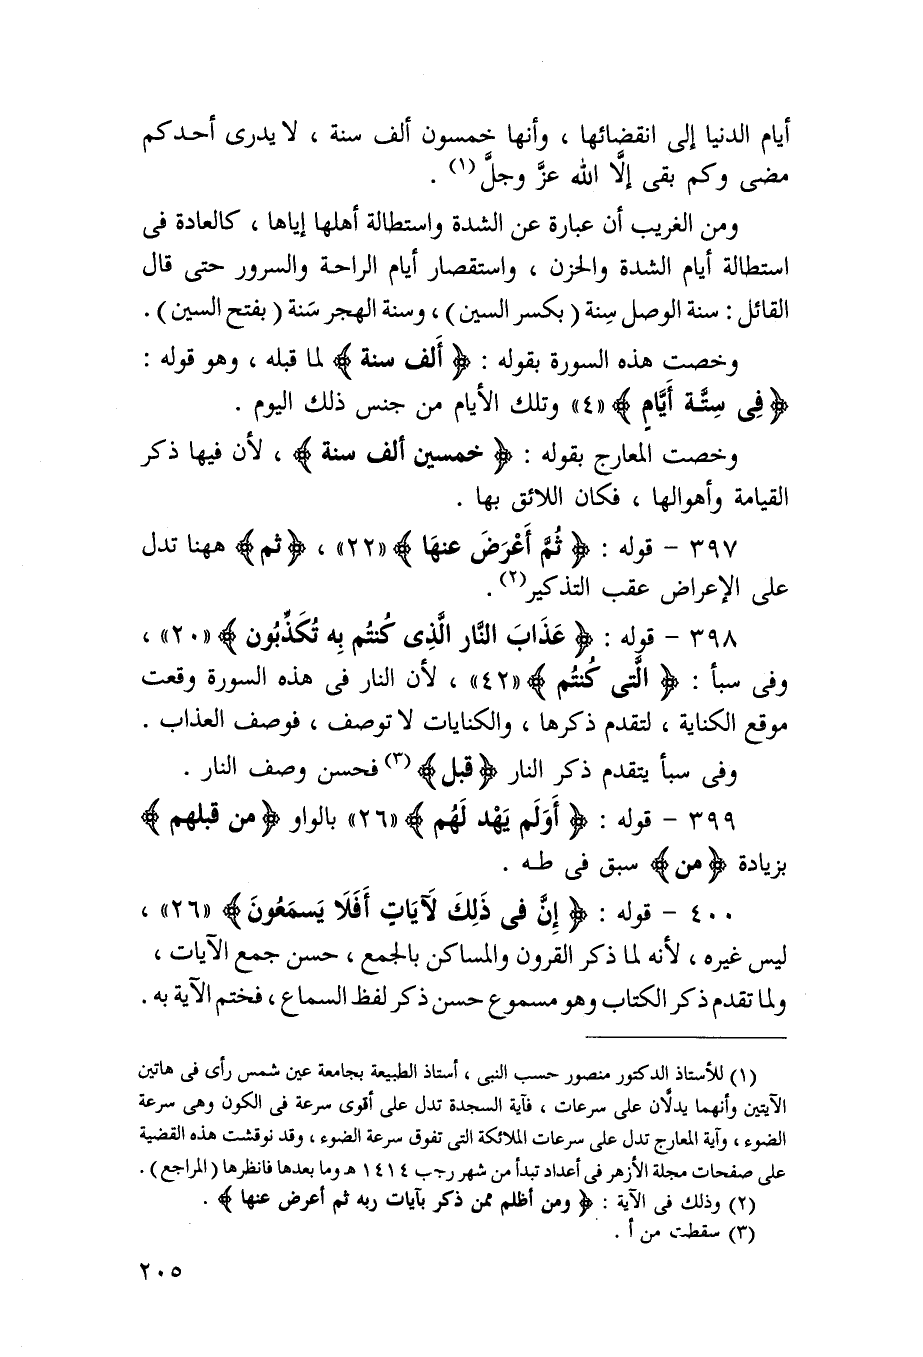 أيام الدنيا إلى انقضائها ، وأنها خمسون ألف سنة ، لا يدرى أحدكم
مضى وكم بقى إلَّا الله عزَّ وجلَّ(١) .
ومن الغريب أن عبارة عن الشدة واستطالة أهلها إياها ، كالعادة فى
استطالة أيام الشدة والحزن ، واستقصار أيام الراحة والسرور حتى قال
القائل : سنة الوصل سِنة ( بكسر السين ) ، وسنة الهجر سَنة ( بفتح السين ) .
وخصت هذه السورة بقوله : ﴿ أَلف سنة ﴾ لما قبله ، وهو قوله :
﴿ فِى سِتَّة أَيَّامٍ ﴾ «٤» وتلك الأيام من جنس ذلك اليوم .
وخصت المعارج بقوله : ﴿ خمسين ألف سنة ﴾ ، لأن فيها ذكر
القيامة وأهوالها ، فكان اللائق بها .
٣٩٧ - قوله : ﴿ ثُمَّ أَعْرَضَ عنهَا ﴾ «٢٢» ، ﴿ ثم ﴾ ههنا تدل
على الإعراض عقب التذكير(٢) .
٣٩٨ - قوله : ﴿ عَذَابَ النَّار الَّذِى كُنتُم بِه تُكَذِّبُون ﴾ «٢٠» ،
وفى سبأ : ﴿ الَّتى كُنتُم ﴾ «٤٢» ، لأن النار فى هذه السورة وقعت
موقع الكناية ، لتقدم ذكرها ، والكنايات لا توصف ، فوصف العذاب .
وفى سبأ يتقدم ذكر النار ﴿ قبل ﴾(٣) فحسن وصف النار .
٣٩٩ - قوله : ﴿ أَوَلَم يَهْد لَهُم ﴾ «٢٦» بالواو ﴿ من قبلهم ﴾
بزيادة ﴿ من ﴾ سبق فى طـه .
٤٠٠ - قوله : ﴿ إِنَّ فى ذَلِكَ لَآيَاتٍ أَفَلَا يَسمَعُونَ ﴾ «٢٦» ،
ليس غيره ، لأنه لما ذكر القرون والمساكن بالجمع ، حسن جمع الآيات ،
ولما تقدم ذكر الكتاب وهو مسموع حسن ذكر لفظ السماع ، فختم الآية به .
(١) للأستاذ الدكتور منصور حسب النبى ، أستاذ الطبيعة بجامعة عين شمس رأى فى هاتين
الآيتين وأنهما يدلَّان على سرعات ، فآية السجدة تدل على أقوى سرعة فى الكون وهى سرعة
الضوء ، وآية المعارج تدل على سرعات الملائكة التى تفوق سرعة الضوء ، وقد نوقشت هذه القضية
على صفحات مجلة الأزهر فى أعداد تبدأ من شهر رجب ١٤١٤ هـ وما بعدها فانظرها ( المراجع ) .
(٢) وذلك فى الآية : ﴿ ومن أظلم ممن ذكر بآيات ربه ثم أعرض عنها ﴾ .
(٣) سقطت من أ .
٢٠٥